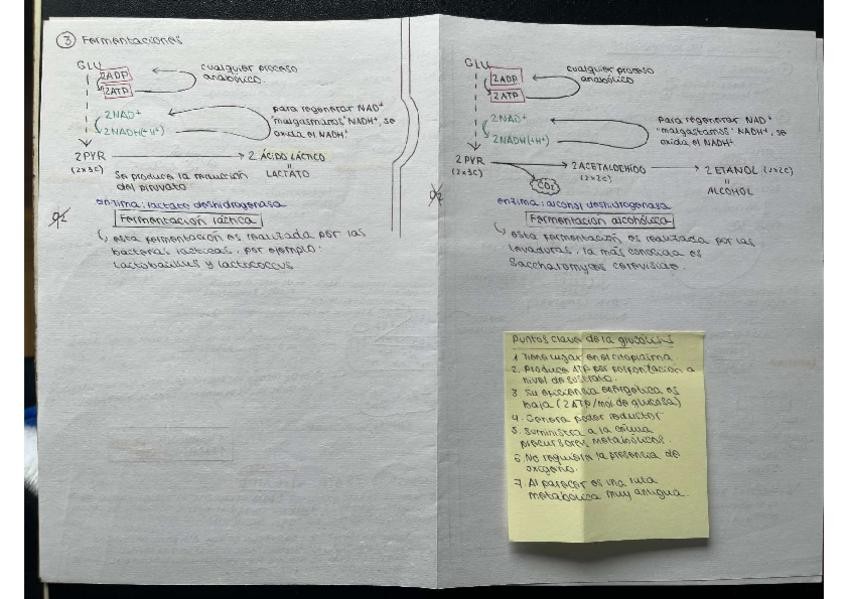 3 Fermentaciones
GLU
2ADP
2ATP
cualquier proceso
anabólico.
2NAD+
2NADH(+H+)
para regenerar NAD+
"malgastamos" NADH+, se
oxida el NADH.
2 PYR
(2x3C)
2 ÁCIDO LÁCTICO
"
LACTATO
Se produce la reducción
del piruvato
enzima: lactato deshidrogenasa
Fermentación láctica
esta fermentación es realizada por las
bacterias lácticas, por ejemplo:
Lactobacillus y lactococcus
GLU
2ADP
2ATP
cualquier proceso
anabólico.
2NAD+
2NADH(+H+)
Para regenerar NAD+
"malgastamos" NADH+, se
oxida el NADH.
2 PYR
(2x3C)
CO2
2 ACETALDEHÍDO
(2x2C)
2 ETANOL (2x2C)
"
ALCOHOL
enzima: alcohol deshidrogenasa
Fermentación alcohólica
esta fermentación es realizada por las
levaduras, la más conocida es
Saccharomyces cerevisiae.
Puntos clave de la glucólisis
1 Tiene lugar en el citoplasma
2. Produce ATP por fosforilación a
nivel de sustrato.
3 Su eficiencia energética es
baja (2ATP/mol de glucosa)
4. Genera poder reductor
5. Suministra a la célula
precursores metabólicos.
6. No requiere la presencia de
oxígeno.
7. Al parecer es una ruta
metabólica muy antigua.